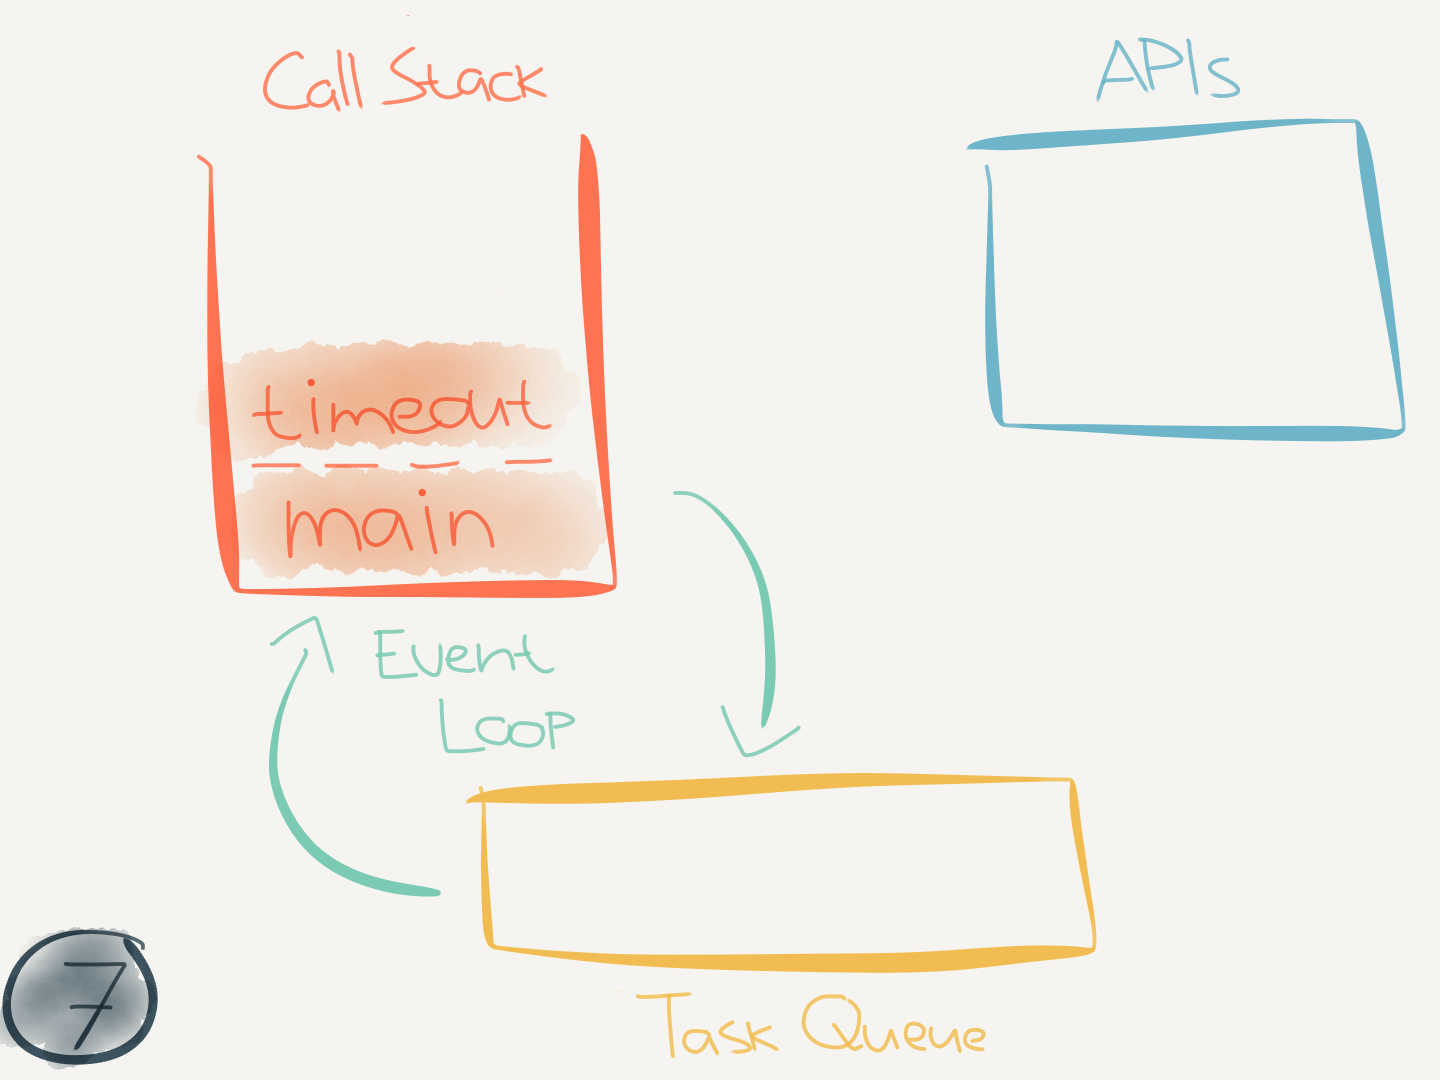 Call Stack
APIs
timeout
main
Event
Loop
Task Queue
7